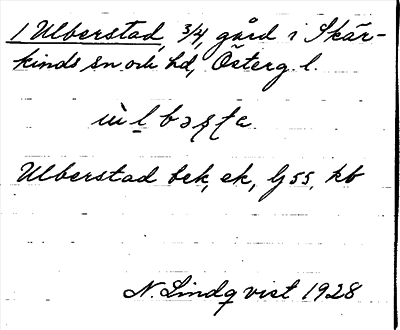 1 Ulberstad, 3/4, gård i Skär-
kinds sn och hd, Österg. l.
Ulberstad bek, ek, ljss, kb
N. Lindqvist 1928